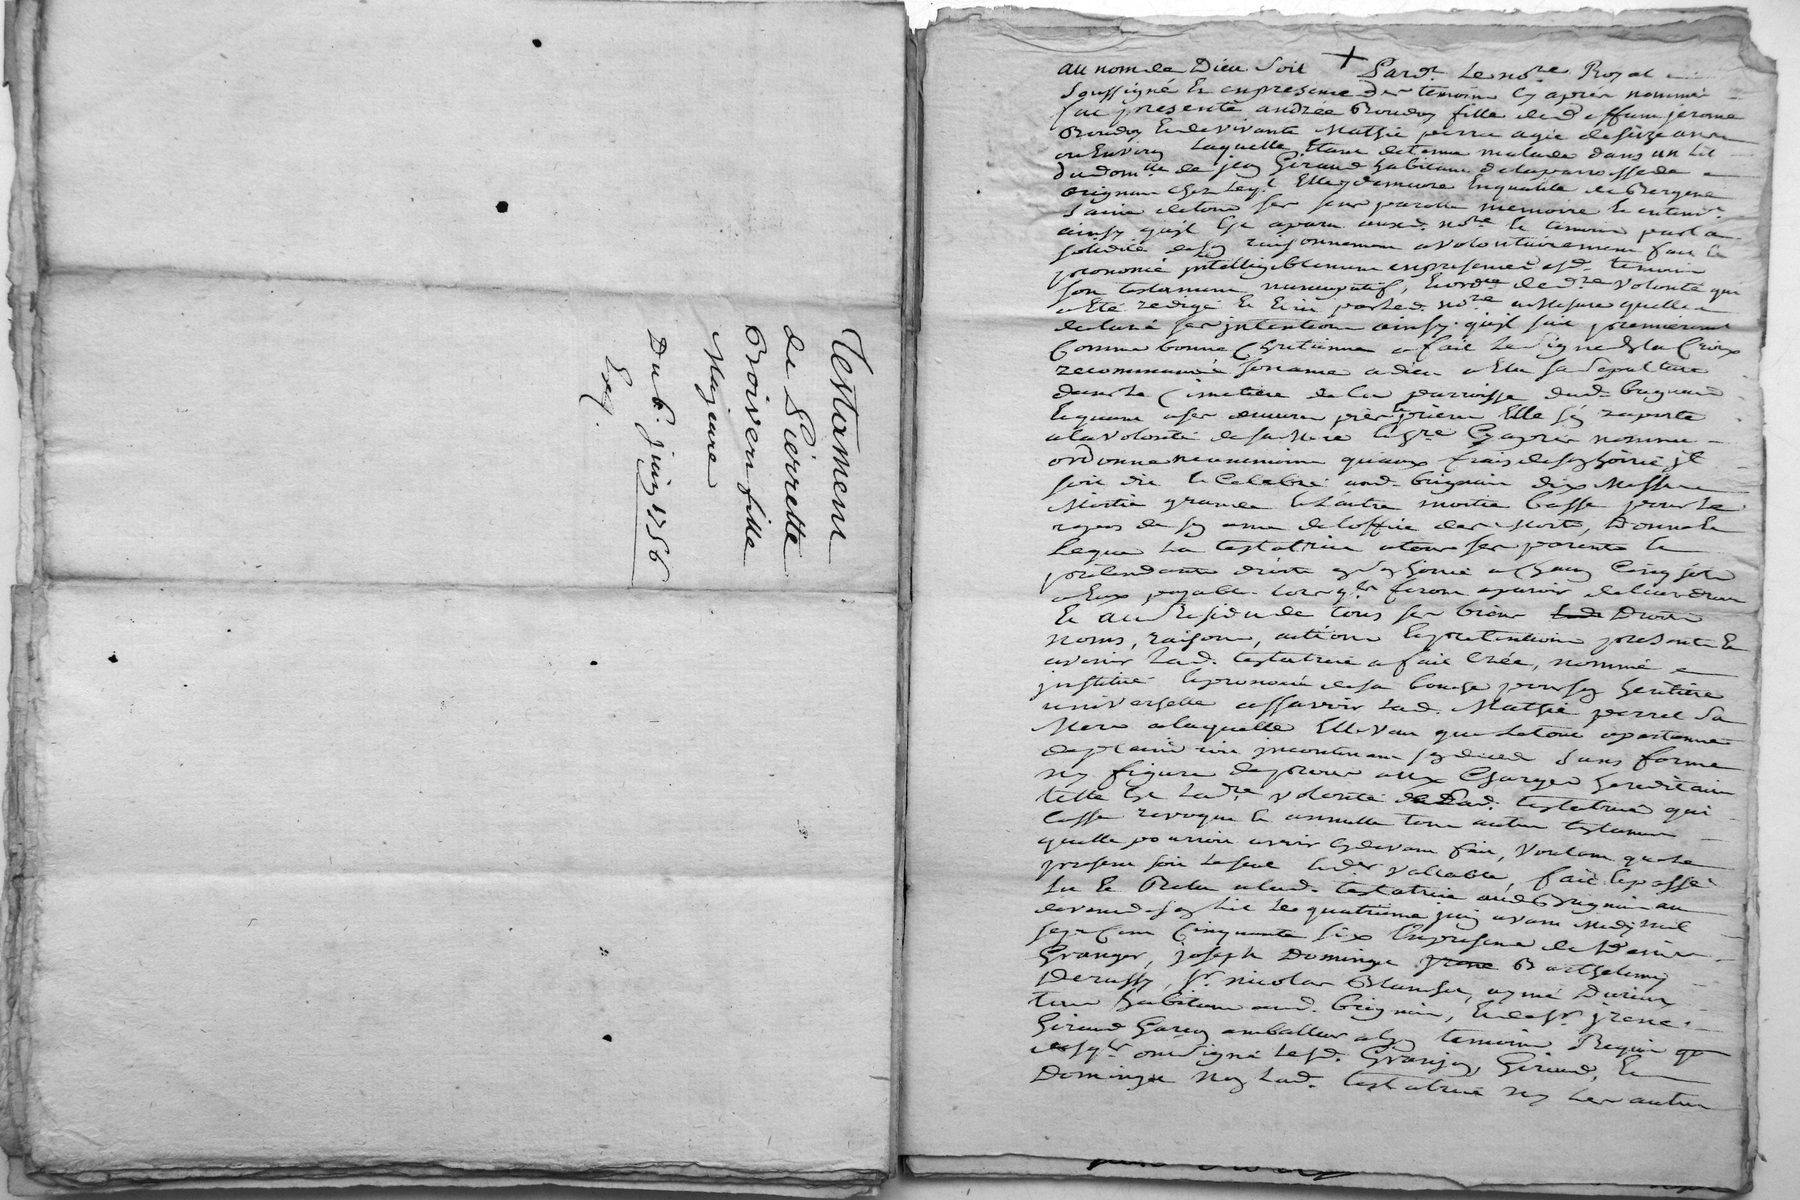 Testament
de Pierrette
Boiveru fille
Majeure
Du 6e. juin 1756
Exp.
au nom de Dieu Soit + Pardt. Le nore Royal
Soussigné Et en presence des temoins cy apres nommés
fut presente andrée Boudoy fille de deffunt jerome
Boudoy Et de vivante Mathie perret agée de seize ans
ou Environ Laquelle Etant detenue malade dans un Lit
du domlle de jean Giraud habitant de la parroisse de
Brignais chez Leql. Elle demeure En qualité de Bergere
Saine de tous ses sens parolle memoire Et entendt.
ainsy quil Est aparu auxd. nore Et temoins par la
solidité de son raisonnement a volontairement fait Et
prononcé intelligiblement en presence desd. temoins
son testament nuncupatif, Et ordre de dre volonté qui
a Eté redigé Et Ecrit par led. nore a Mesure quelle a
declaré ses intentions ainsy quil suit premierement
Comme bonne Chretienne a fait Le signe de la Croix
recommandé son ame a dieu a Elu sa Sepulture
dans Le Cimetiere de la parroisse dud. brignais
Et quant a ses œuvres pies Et prieres Elle s'en raporte
a la volonté de sa Mere herre Cy apres nommée
ordonne neanmoins qu'aux frais de son hoirie il
soit dit Et Celebré aud. brignais dix Messes
Moitié grande Et L'autre moitié basse pour Le
repos de son ame de L'office des Morts, Donne Et
Legue La testatrice a tous ses parents Et
pretendants droits en son hoirie a Chacun Cinq sols
a Eux payable Lorsqls. feront aparoir de leur droit
Et au Residu de tous ses biens Droits
noms, raisons, actions Et pretentions presents Et
avenir Lad. testatrice a fait Créé, nommé
institué Et prononcé de sa bouche pour son heritiere
universelle assavoir Lad. Mathie perret Sa
Mere a laquelle Elle Veut que Le tout apartienne
de plein droit incontinent son deced sans forme
ny figure de proces aux Charges hereditaires
telle Est La dre volonté de Lad. testatrice qui
Casse revoque Et annulle tous autres testaments
quelle pourroit avoir cy devant fait, Voulant que Le
present soit Le seul Et der Vallable, fait Et passé
Lu Et Relu a Lad. testatrice aud Brignais au
devant de son Lit Le quatrieme juin avant Midy mil
sept Cent Cinquante six En presence de Pierre
Granger, joseph Domingue Barthelemy
Derussy, sr. nicolas Blanchet, aymé Durieux
tous habitants aud. brignais, Et de sr. irené
Giraud Garçon emballeur a Lyon temoins Requis qui
de ce Enqs ont signé Lesd. Granger, Giraud, Et
Domingue Non Lad. testatrice ny Les autres